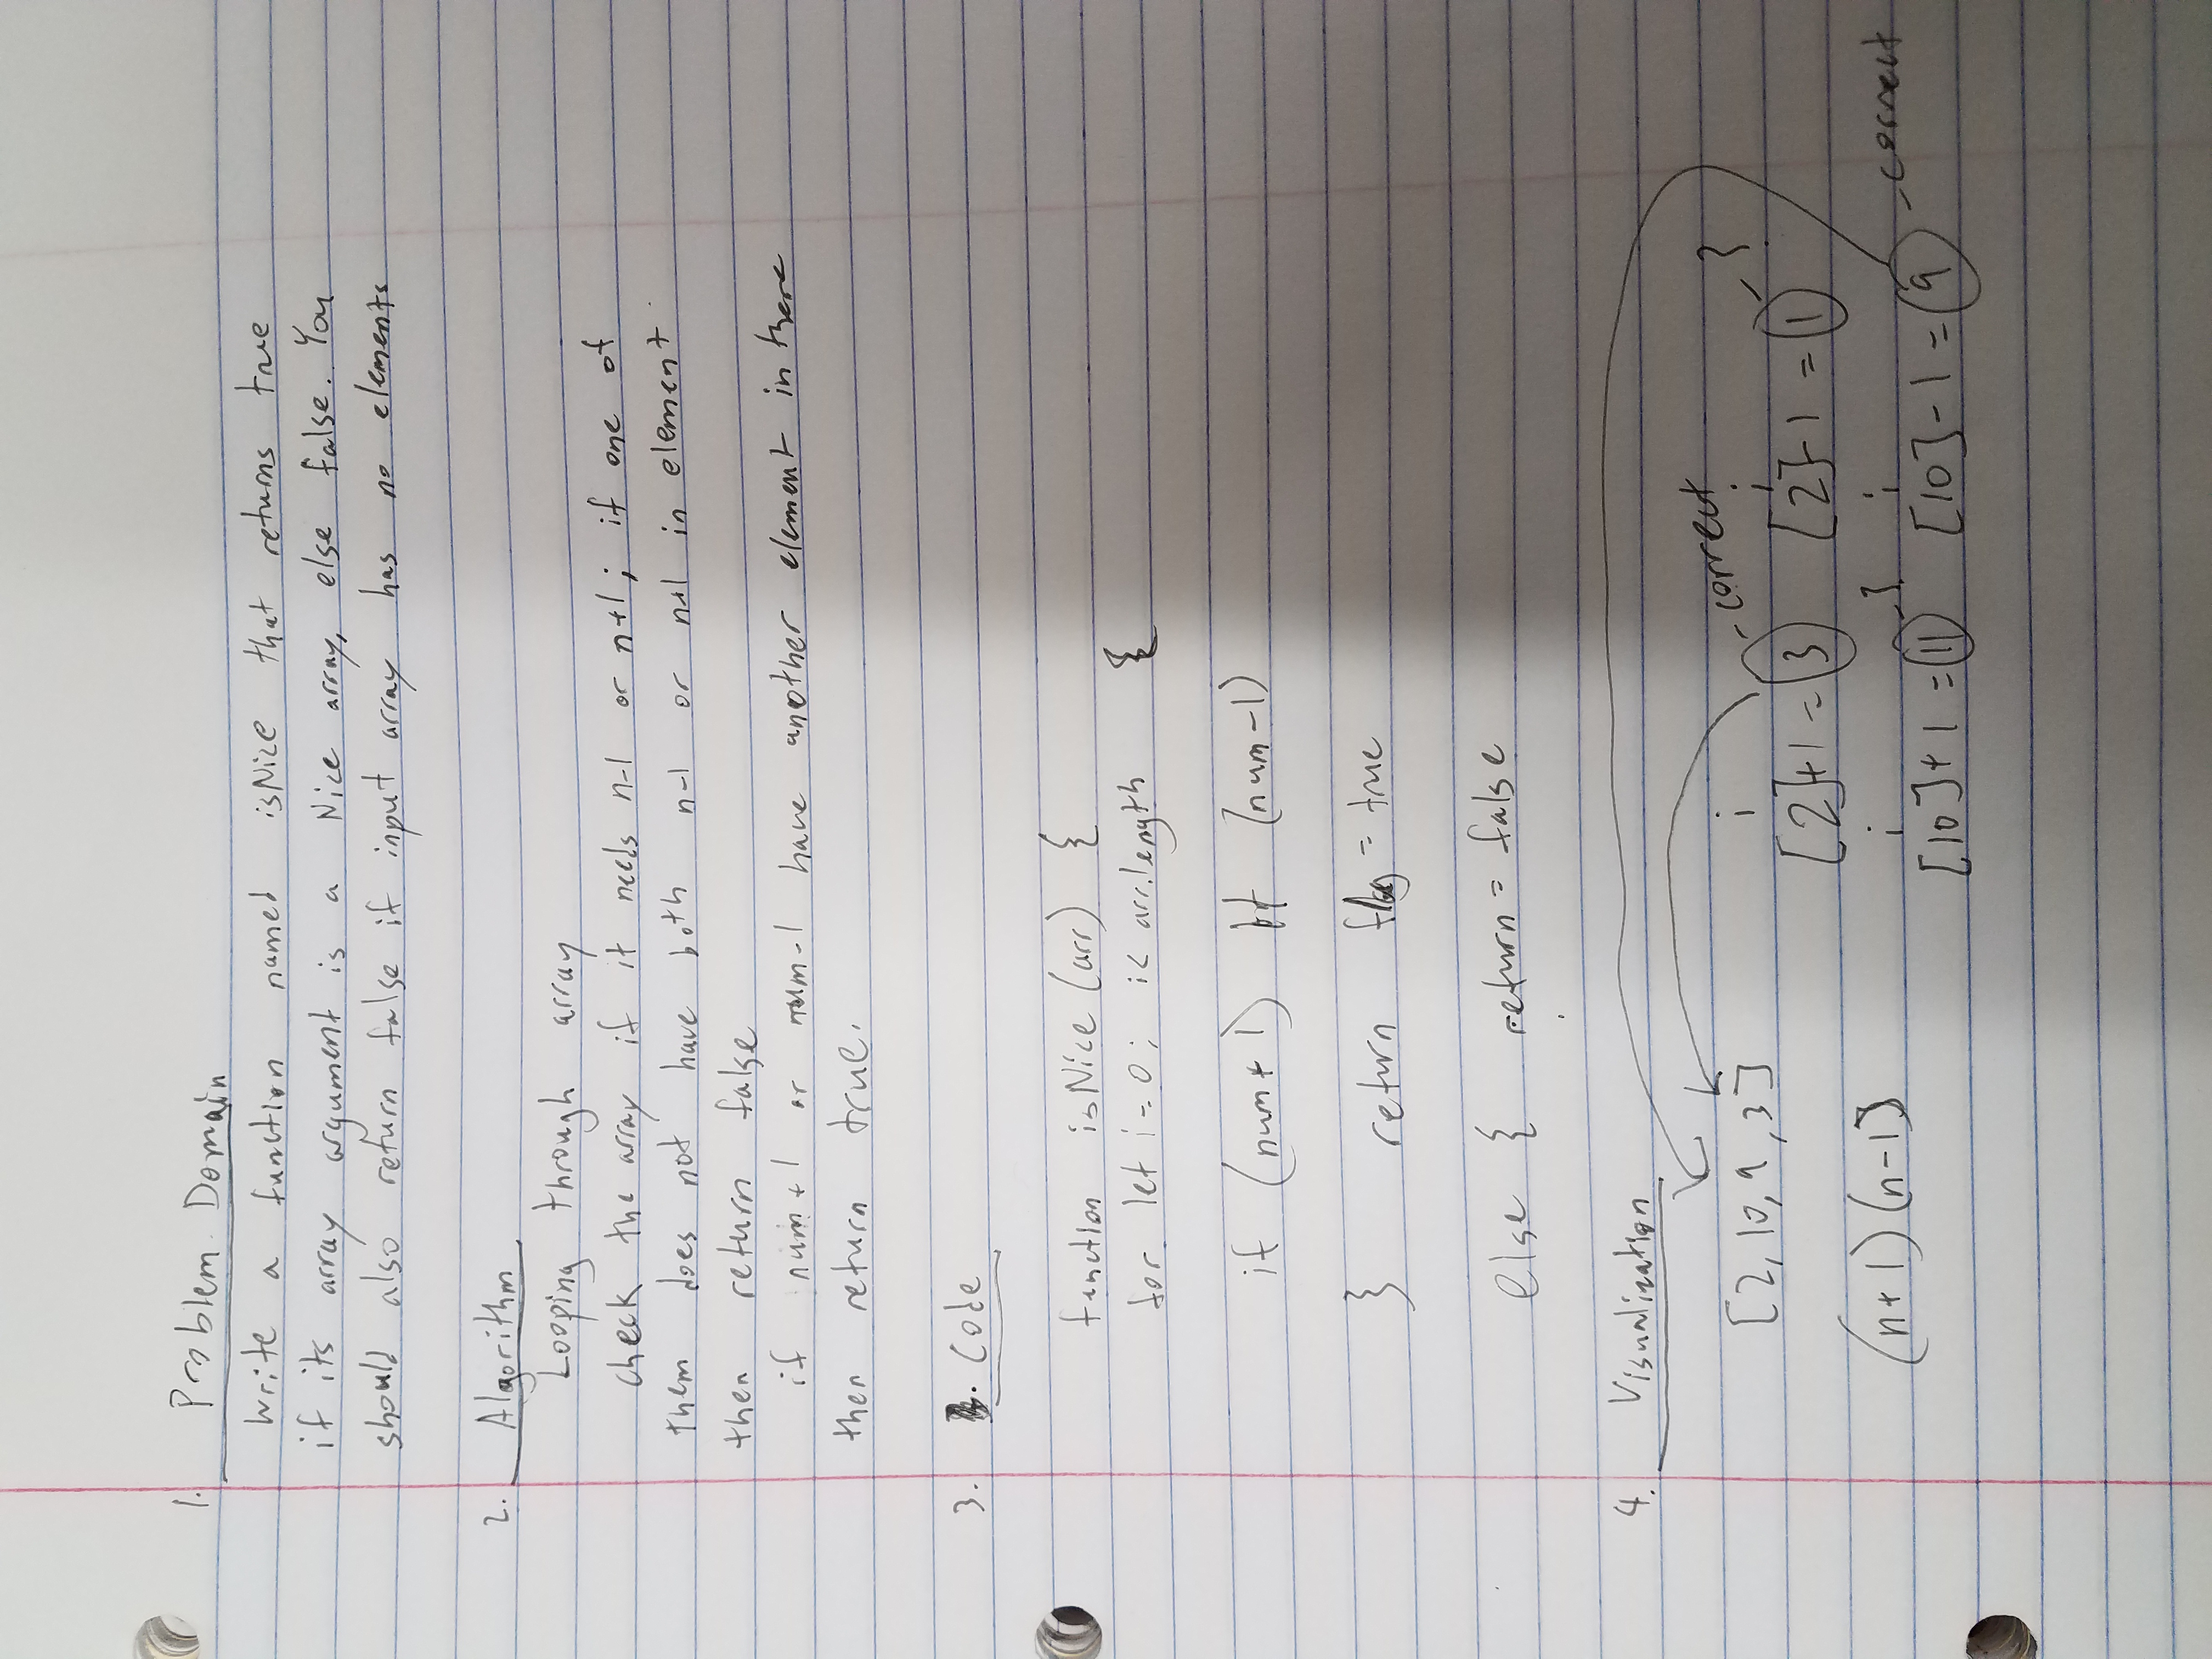 1. Problem Domain
Write a function named isNice that returns true
if its array argument is a Nice array, else false. You
should also return false if input array has no elements
2. Algorithm
Looping through array
check the array if it needs n-1 or n+1; if one of
them does not have both n-1 or n+1 in element
then return false
if num+1 or num-1 have another element in there
then return true.
3. Code
function isNice (arr) {
for let i=0; i< arr.length {
if (num+1) (num-1)
} return flag = true
else { return = false
4. Visualization
[2, 10, 9, 3]
i - correct i
[2]+1 = 3 [2]-1 = 1
(n+1)(n-1)
i i - correct
[10]+1 = 11 [10]-1 = 9